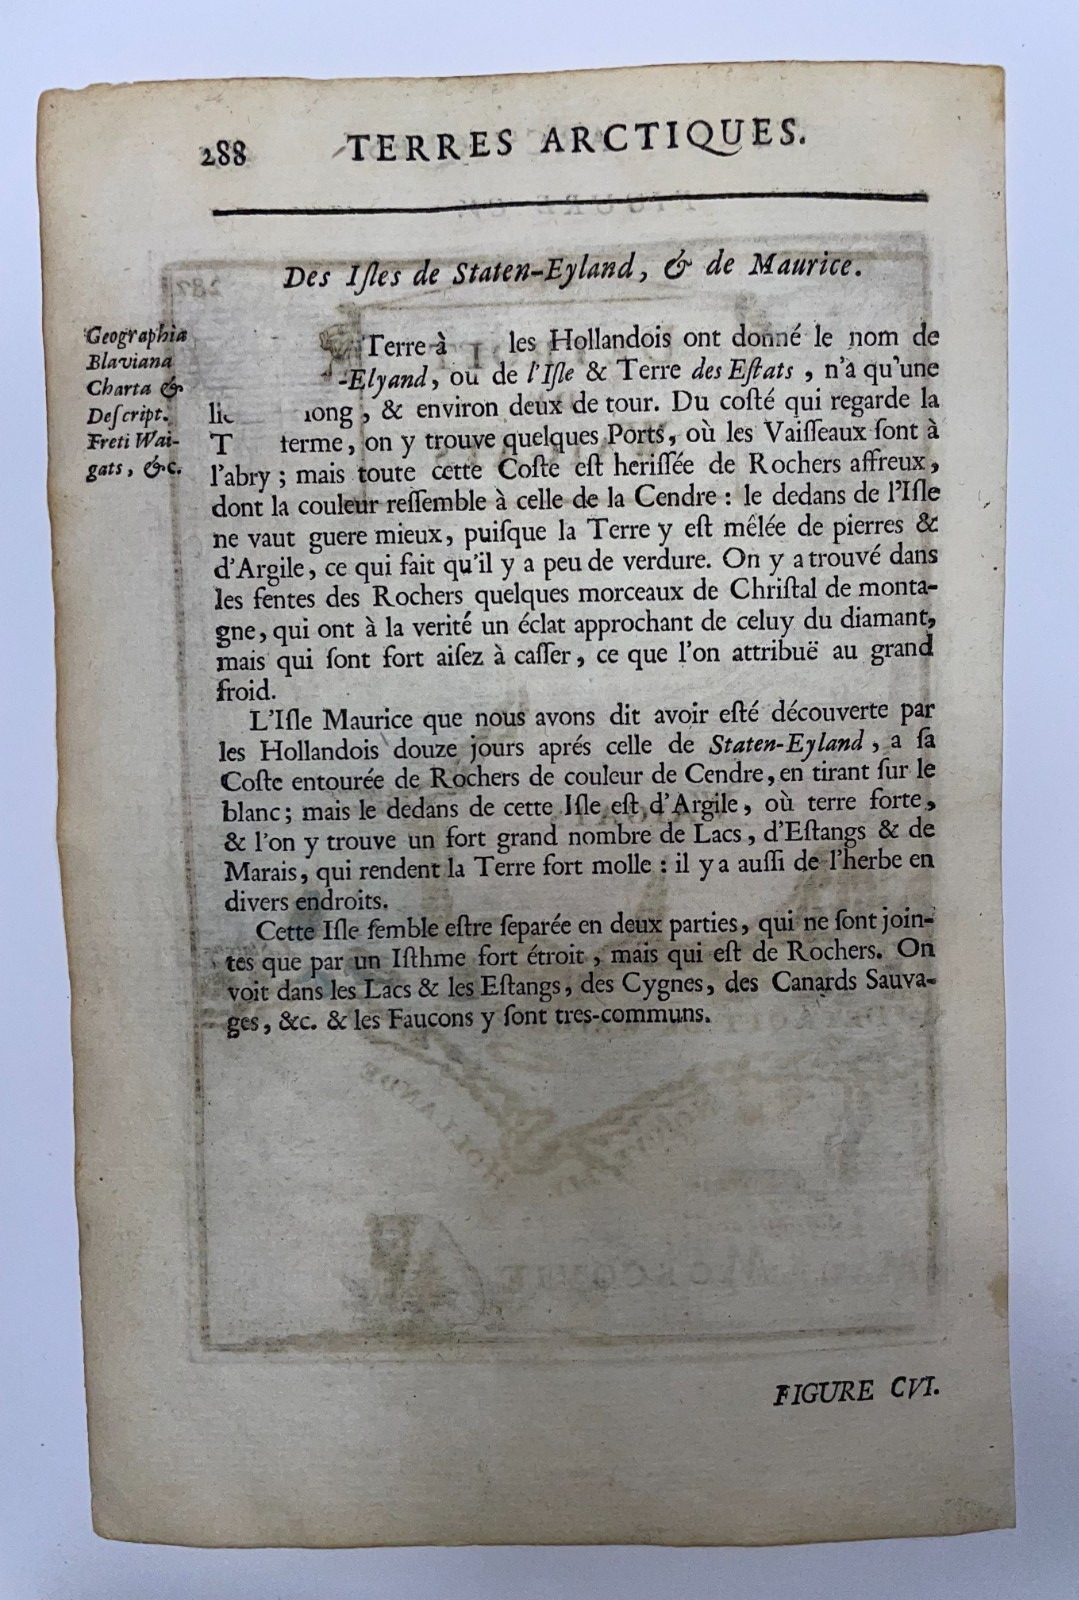 288 TERRES ARCTIQUES.
Des Iſles de Staten-Eyland, & de Maurice.
Geographia
Blaviana
Charta &
Deſcript.
Freti Wai-
gats, &c.
Terre à les Hollandois ont donné le nom de
-Elyand, ou de l'Iſle & Terre des Eſtats, n'à qu'une
& environ deux de tour. Du coſté qui regarde la
T terme, on y trouve quelques Ports, où les Vaiſſeaux ſont à
l'abry; mais toute cette Coſte eſt heriſſée de Rochers affreux,
dont la couleur reſſemble à celle de la Cendre: le dedans de l'Iſle
ne vaut guere mieux, puiſque la Terre y eſt mêlée de pierres &
d'Argile, ce qui fait qu'il y a peu de verdure. On y a trouvé dans
les fentes des Rochers quelques morceaux de Chriſtal de monta-
gne, qui ont à la verité un éclat approchant de celuy du diamant,
mais qui ſont fort aiſez à caſſer, ce que l'on attribuë au grand
froid.
L'Iſle Maurice que nous avons dit avoir eſté découverte par
les Hollandois douze jours aprés celle de Staten-Eyland, a ſa
Coſte entourée de Rochers de couleur de Cendre, en tirant ſur le
blanc; mais le dedans de cette Iſle eſt d'Argile, où terre forte,
& l'on y trouve un fort grand nombre de Lacs, d'Eſtangs & de
Marais, qui rendent la Terre fort molle: il y a auſſi de l'herbe en
divers endroits.
Cette Iſle ſemble eſtre ſeparée en deux parties, qui ne ſont join-
tes que par un Iſthme fort étroit, mais qui eſt de Rochers. On
voit dans les Lacs & les Eſtangs, des Cygnes, des Canards Sauva-
ges, &c. & les Faucons y ſont tres-communs.
FIGURE CVI.